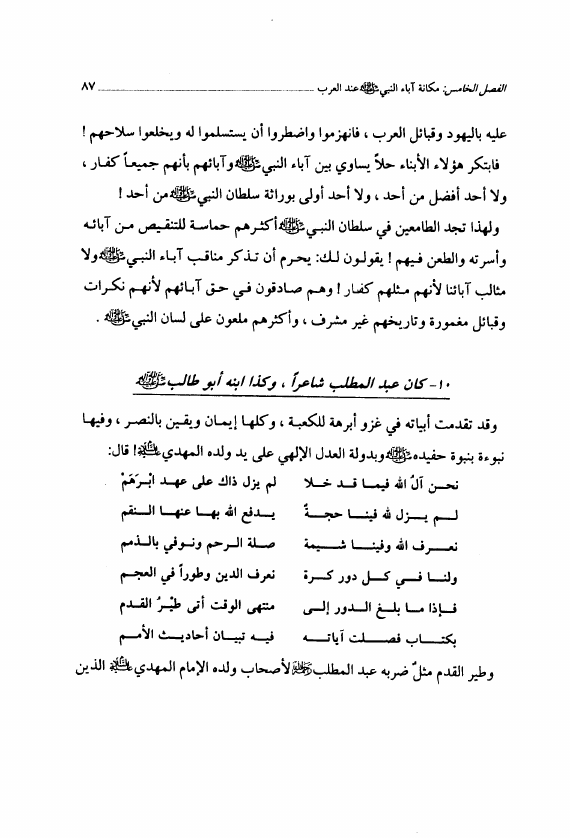 الفصل الخامس: مكانة آباء النبي ﷺ عند العرب ٨٧
عليه باليهود وقبائل العرب ، فانهزموا واضطروا أن يستسلموا له ويخلعوا سلاحهم !
فابتكر هؤلاء الأبناء حلاً يساوي بين آباء النبي ﷺ وآبائهم بأنهم جميعاً كفار ،
ولا أحد أفضل من أحد ، ولا أحد أولى بوراثة سلطان النبي ﷺ من أحد !
ولهذا تجد الطامعين في سلطان النبي ﷺ أكثرهم حماسة للتنقيص من آبائه
وأسرته والطعن فيهم ! يقولون لك: يحرم أن تذكر مناقب آباء النبي ﷺ ولا
مثالب آبائنا لأنهم مثلهم كفار ! وهم صادقون في حق آبائهم لأنهم نكرات
وقبائل مغمورة وتاريخهم غير مشرف ، وأكثرهم ملعون على لسان النبي ﷺ .
١٠- كان عبد المطلب شاعراً ، وكذا ابنه أبو طالب
وقد تقدمت أبياته في غزو أبرهة للكعبة ، وكلها إيمان ويقين بالنصر ، وفيها
نبوءة بنبوة حفيده ﷺ وبدولة العدل الإلهي على يد ولده المهدي ! قال:
نحن آلُ الله فيما قد خلا لم يزل ذاك على عهد ابْرَهَمْ
لم يزل لله فينا حجةٌ يدفع الله بها عنها النقم
نعرف الله وفينا شيمة صلة الرحم ونوفي بالذمم
ولنا في كل دور كرة نعرف الدين وطوراً في العجم
فإذا ما بلغ الدور إلى منتهى الوقت أتى طيْرُ القدم
بكتاب فصلت آياته فيه تبيان أحاديث الأمم
وطير القدم مثلٌ ضربه عبد المطلب لأصحاب ولده الإمام المهدي الذين